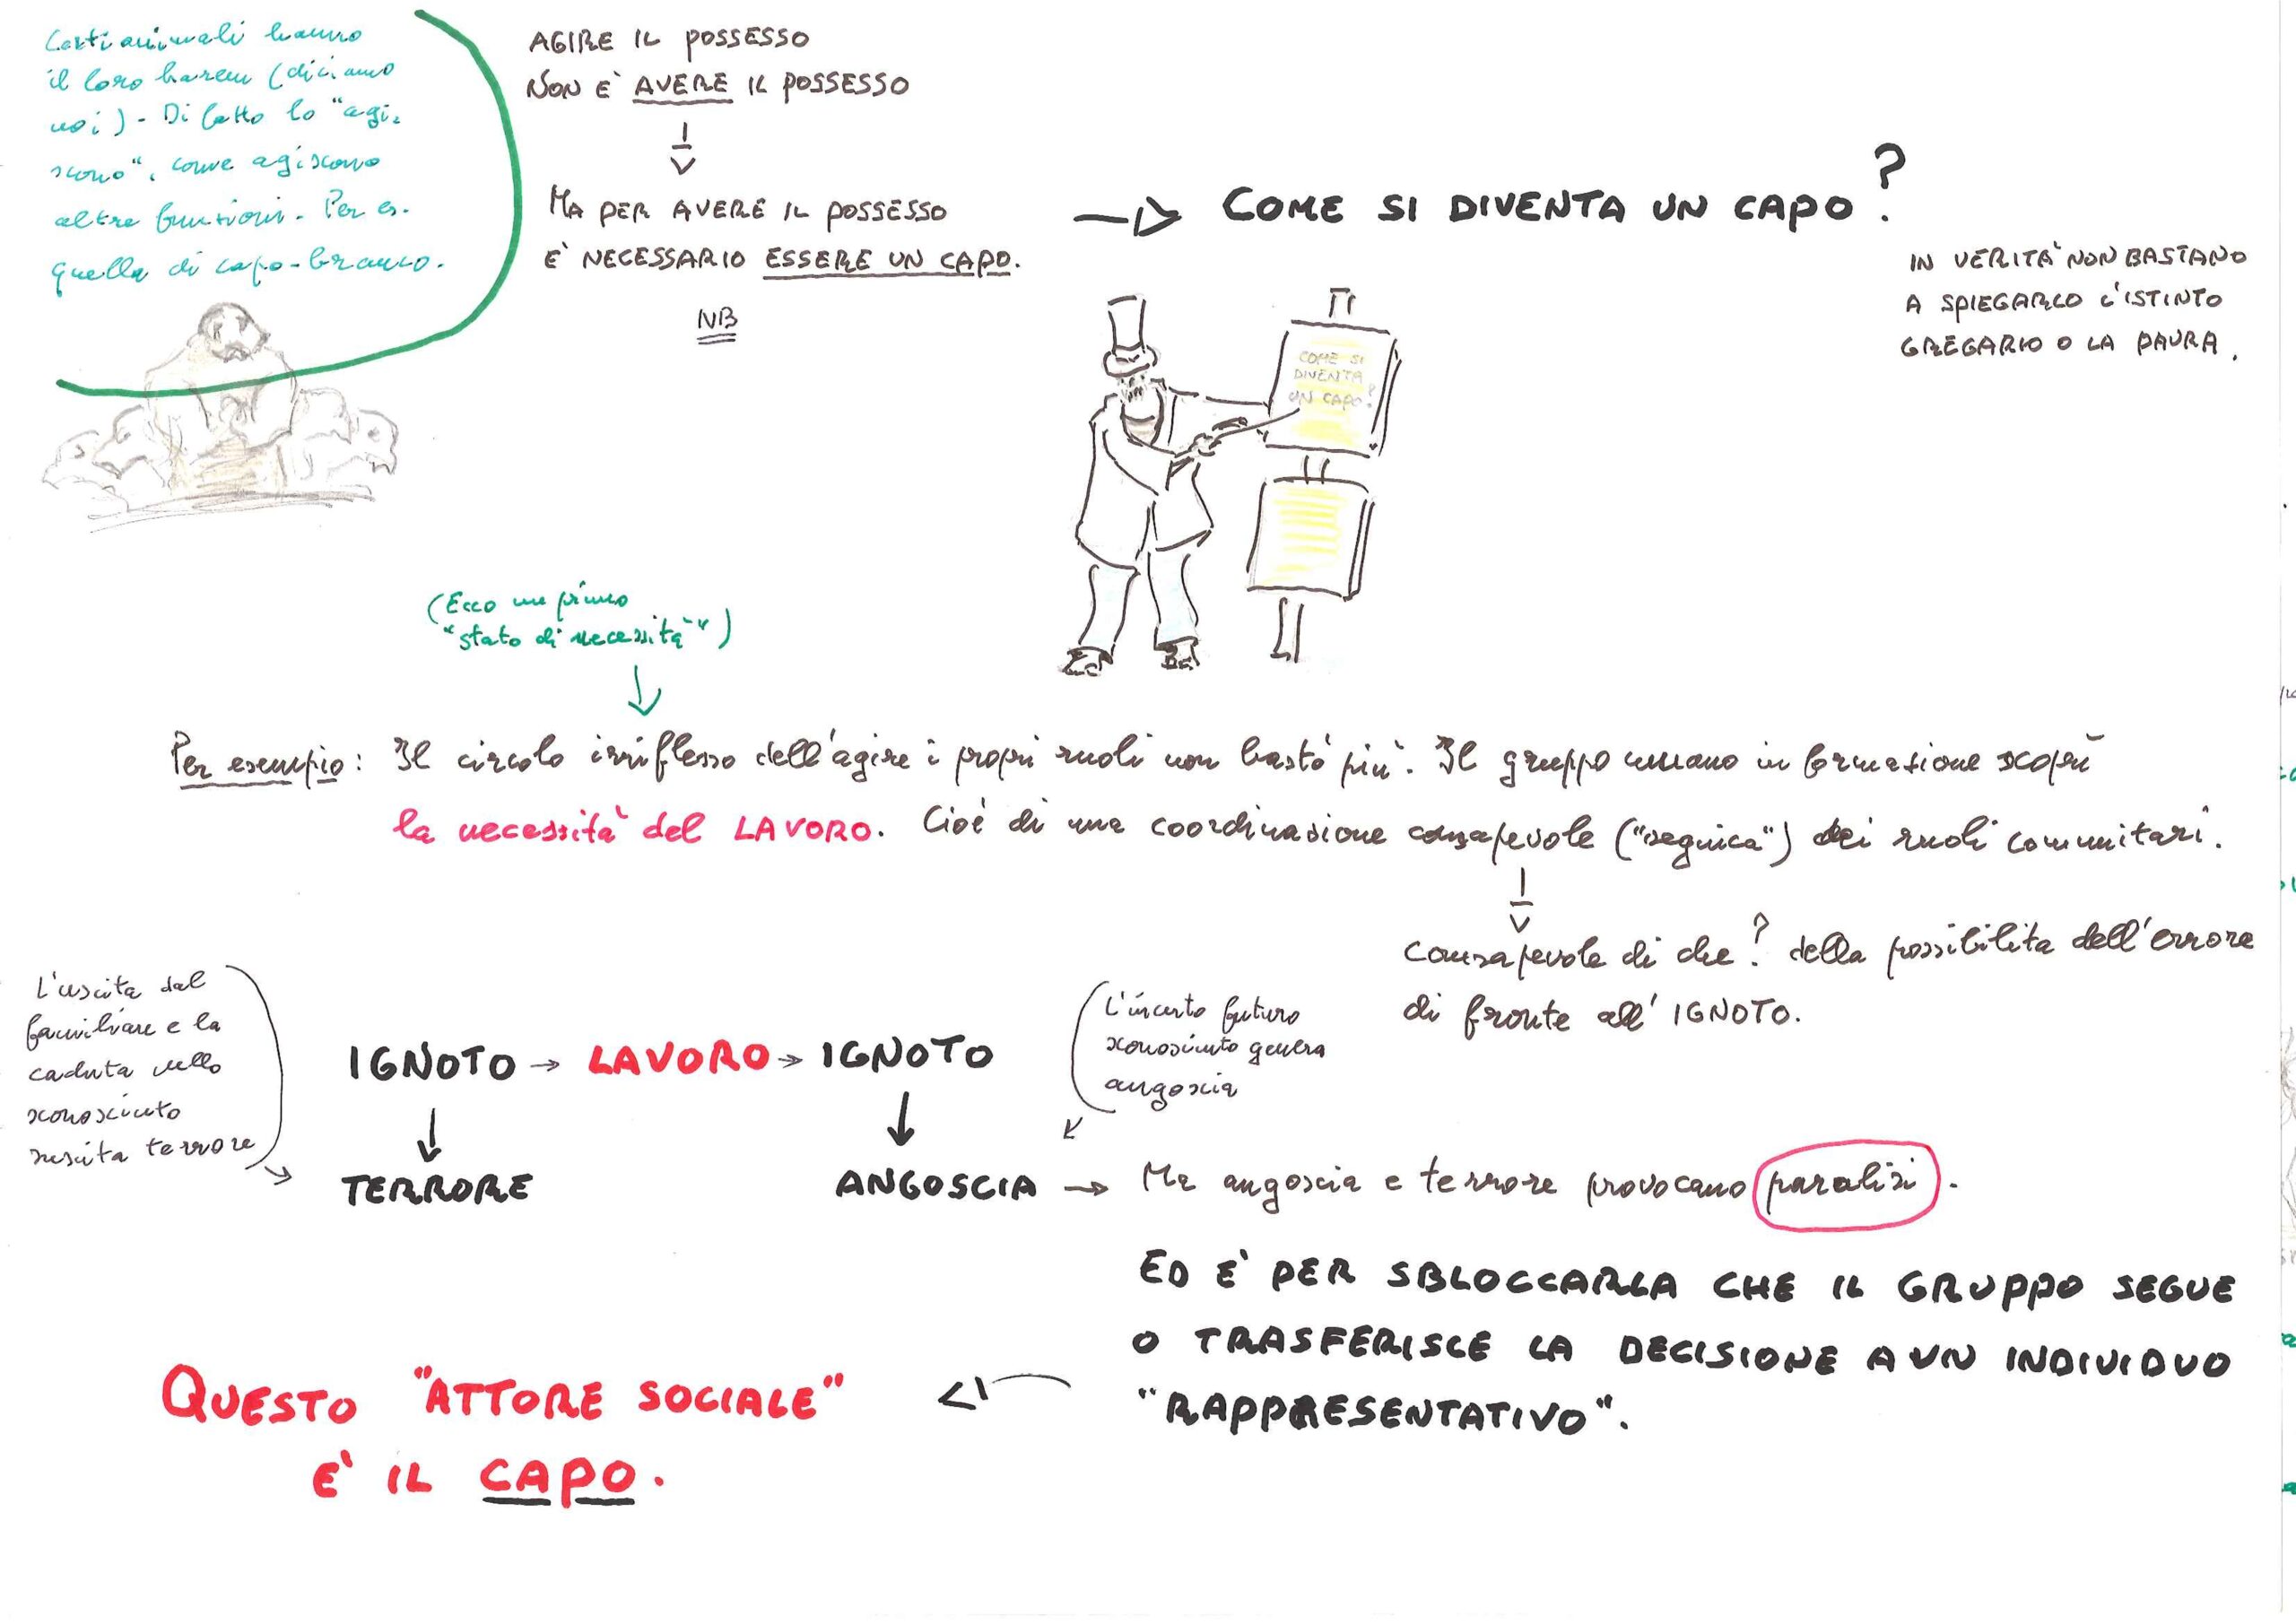 Certi animali hanno
il loro harem (diciamo
noi) - Di fatto lo "agi-
scono", come agiscono
altre funzioni. Per es.
quella di capo-branco.
AGIRE IL POSSESSO
NON E' AVERE IL POSSESSO
MA PER AVERE IL POSSESSO
E' NECESSARIO ESSERE UN CAPO.
NB
COME SI DIVENTA UN CAPO?
IN VERITA' NON BASTANO
A SPIEGARLO L'ISTINTO
GREGARIO O LA PAURA.
COME SI
DIVENTA
UN CAPO?
(Ecco un primo
"stato di necessità")
Per esempio: Il circolo irriflesso dell'agire i propri ruoli non bastò più. Il gruppo umano in formazione scoprì
la necessità del LAVORO. Cioè di una coordinazione consapevole ("seguica") dei ruoli comunitari.
consapevole di che? della possibilita dell'errore
di fronte all'IGNOTO.
L'uscita dal
familiare e la
caduta nello
sconosciuto
suscita terrore
IGNOTO → LAVORO → IGNOTO
L'incerto futuro
sconosciuto genera
angoscia
TERRORE
ANGOSCIA → Ma angoscia e terrore provocano paralisi.
ED E' PER SBLOCCARLA CHE IL GRUPPO SEGUE
O TRASFERISCE LA DECISIONE A UN INDIVIDUO
"RAPPRESENTATIVO".
QUESTO "ATTORE SOCIALE"
E' IL CAPO.